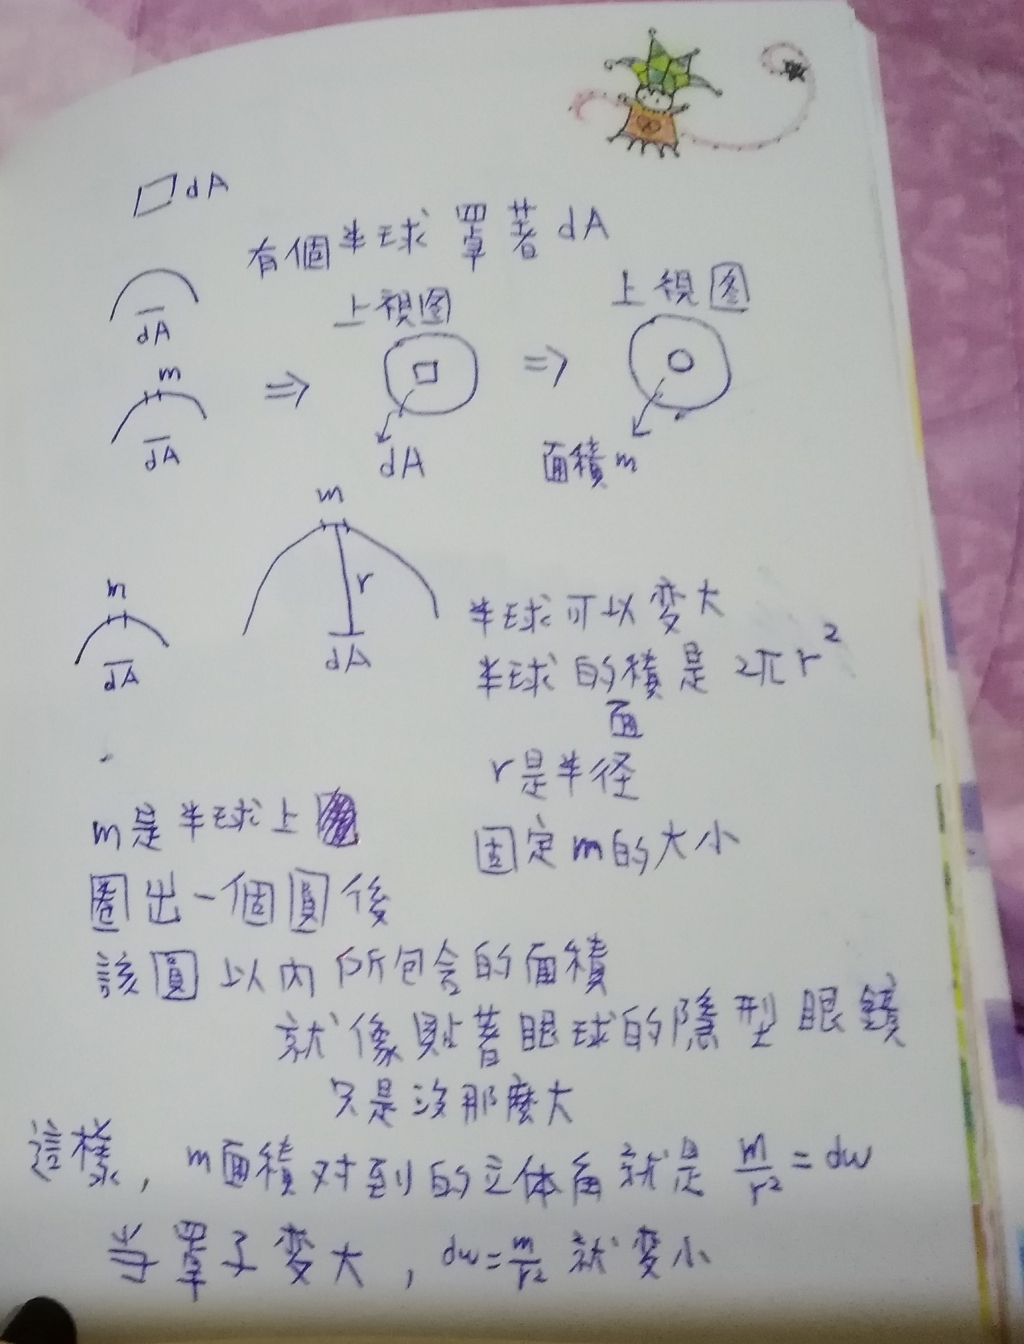 dA
有個半球罩著dA
dA
上視图
上視图
m
dA
dA
面積m
m
r
dA
m
dA
半球可以变大
半球的積是2πr²
面
r是半径
固定m的大小
m是半球上
圈出一個圓後
該圓以内所包含的面積
就像貼著眼球的隱型眼鏡
只是沒那麼大
這樣, m面積对到的立体角就是 m/r² = dw
当罩子变大, dw=m/r² 就变小